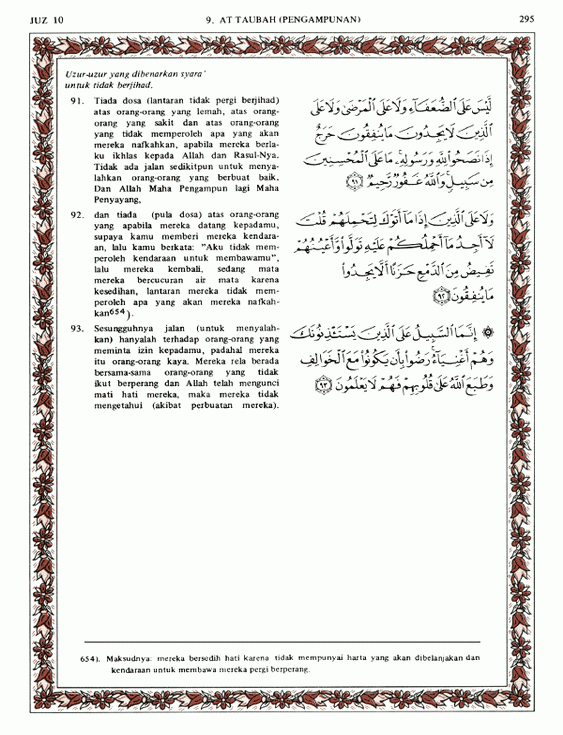 JUZ 10
9. AT TAUBAH (PENGAMPUNAN)
295
Uzur-uzur yang dibenarkan syara'
untuk tidak berjihad.
91. Tiada dosa (lantaran tidak pergi berjihad)
atas orang-orang yang lemah, atas orang-
orang yang sakit dan atas orang-orang
yang tidak memperoleh apa yang akan
mereka nafkahkan, apabila mereka berla-
ku ikhlas kepada Allah dan Rasul-Nya.
Tidak ada jalan sedikitpun untuk menya-
lahkan orang-orang yang berbuat baik.
Dan Allah Maha Pengampun lagi Maha
Penyayang,
92. dan tiada (pula dosa) atas orang-orang
yang apabila mereka datang kepadamu,
supaya kamu memberi mereka kendara-
an, lalu kamu berkata: ”Aku tidak mem-
peroleh kendaraan untuk membawamu”,
lalu mereka kembali, sedang mata
mereka bercucuran air mata karena
kesedihan, lantaran mereka tidak mem-
peroleh apa yang akan mereka nafkah-
kan654).
93. Sesungguhnya jalan (untuk menyalah-
kan) hanyalah terhadap orang-orang yang
meminta izin kepadamu, padahal mereka
itu orang-orang kaya. Mereka rela berada
bersama-sama orang-orang yang tidak
ikut berperang dan Allah telah mengunci
mati hati mereka, maka mereka tidak
mengetahui (akibat perbuatan mereka).
لَّيْسَ عَلَى ٱلضُّعَفَآءِ وَلَا عَلَى ٱلْمَرْضَىٰ وَلَا عَلَى
ٱلَّذِينَ لَا يَجِدُونَ مَا يُنفِقُونَ حَرَجٌ
إِذَا نَصَحُوا۟ لِلَّهِ وَرَسُولِهِۦ ۚ مَا عَلَى ٱلْمُحْسِنِينَ
مِن سَبِيلٍ ۚ وَٱللَّهُ غَفُورٌ رَّحِيمٌ ﴿٩١﴾
وَلَا عَلَى ٱلَّذِينَ إِذَا مَآ أَتَوْكَ لِتَحْمِلَهُمْ قُلْتَ
لَآ أَجِدُ مَآ أَحْمِلُكُمْ عَلَيْهِ تَوَلَّوا۟ وَّأَعْيُنُهُمْ
تَفِيضُ مِنَ ٱلدَّمْعِ حَزَنًا أَلَّا يَجِدُوا۟
مَا يُنفِقُونَ ﴿٩٢﴾
۞ إِنَّمَا ٱلسَّبِيلُ عَلَى ٱلَّذِينَ يَسْتَـْٔذِنُونَكَ
وَهُمْ أَغْنِيَآءُ ۚ رَضُوا۟ بِأَن يَكُونُوا۟ مَعَ ٱلْخَوَالِفِ
وَطَبَعَ ٱللَّهُ عَلَىٰ قُلُوبِهِمْ فَهُمْ لَا يَعْلَمُونَ ﴿٩٣﴾
654). Maksudnya: mereka bersedih hati karena tidak mempunyai harta yang akan dibelanjakan dan
kendaraan untuk membawa mereka pergi berperang.